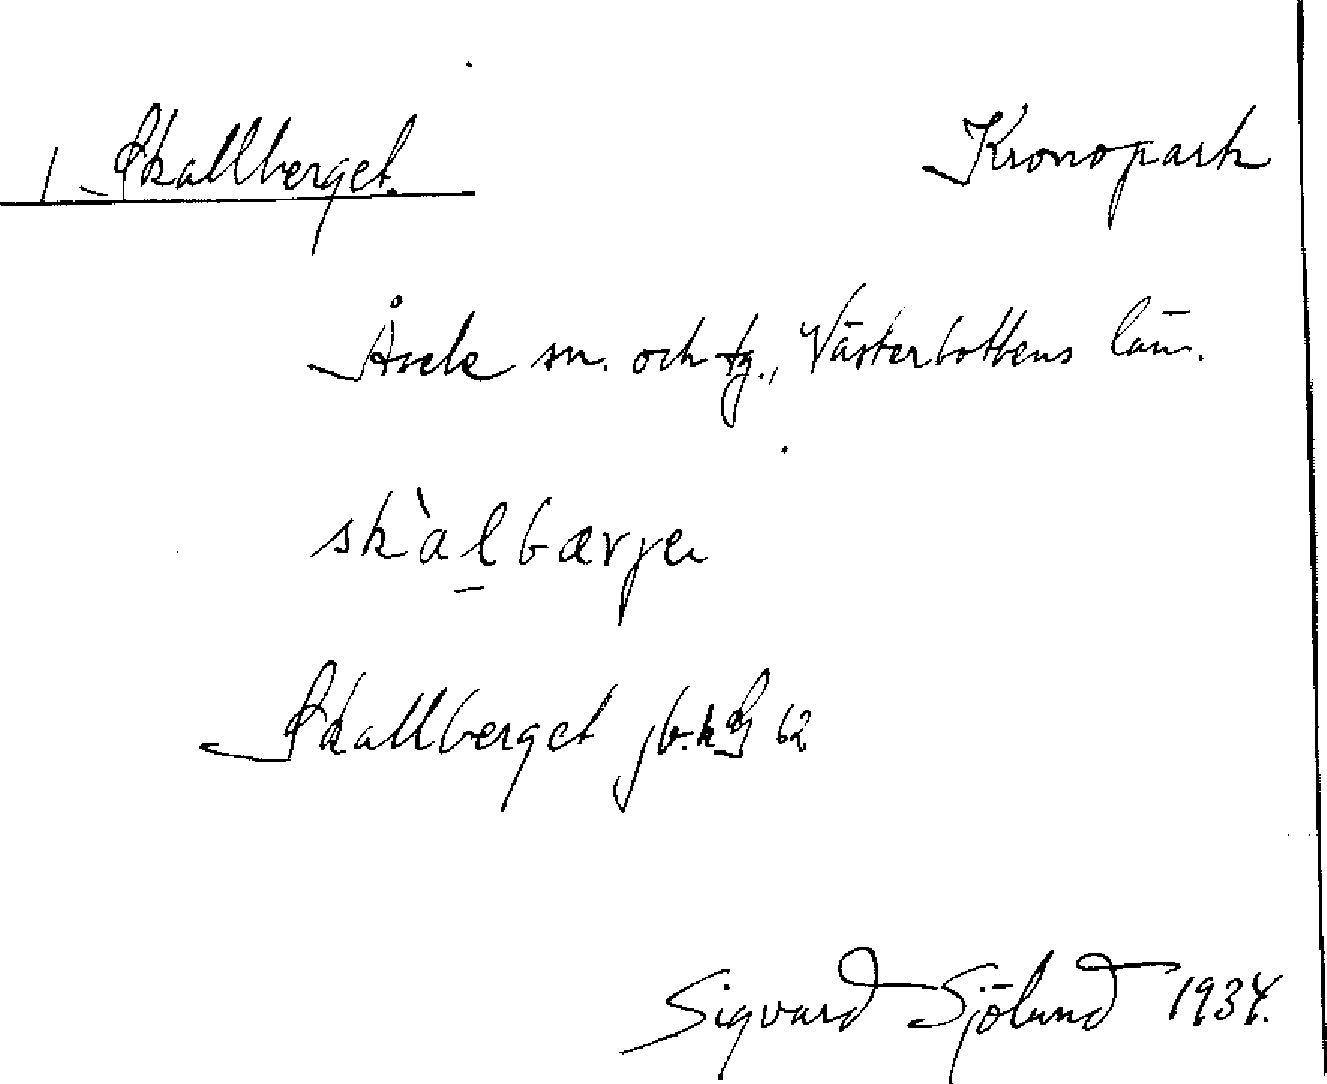 1 Skallberget. Kronopark
Åsele sn. och tg., Västerbottens län.
skàlbærjen
Skallberget jb.k 62
Sigvard Sjölund 1934.